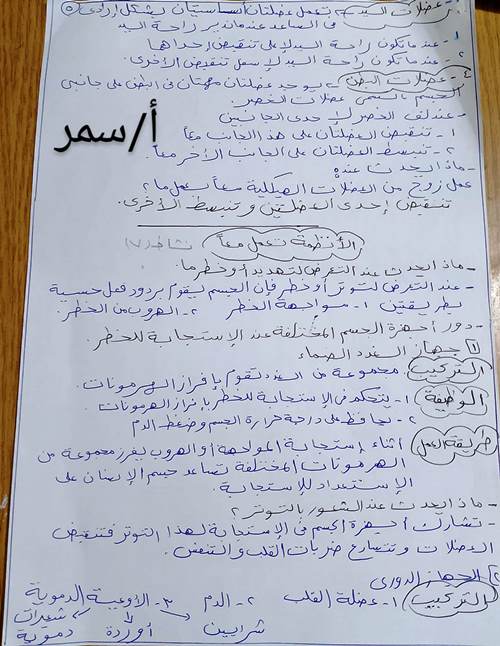 عضلات اليد => تعمل عضلتان أساسيتان بشكل إرادى
فى الساعد عندما ندير راحة اليد
١- عندما تكون راحة اليد لأعلى تنقبض إحداها
٢- عندما تكون راحة اليد لأسفل تنقبض الأخرى.
٤- عضلات البطن => يوجد عضلتان مهمتان فى البطن على جانبى
الجسم بالتسمى عضلات الخصر
- عند لف الخصر لإحدى الجانبين
١- تنقبض العضلتان على هذا الجانب معاً
٢- تنبسط العضلتان على الجانب الأخر معاً.
أ/سمر
- ماذا يحدث عند:
عمل زوج من العضلات الهيكلية معاً بعمل ما؟
تنقبض إحدى العضلتين وتنبسط الأخرى.
الأنظمة تعمل معاً نشاط (٧)
- ماذا يحدث عند التعرض لتهديد أو خطر ما.
- عند التعرض لتوتر أو خطر فإن الجسم يقوم بردود فعل حسية
بطريقتين ١- مواجهة الخطر ٢- الهروب من الخطر.
- دور أجهزة الجسم المختلفة عند الإستجابة للخطر.
١ جهاز الغدد الصماء
التركيب مجموعة من الغدد تقوم بإفراز الهرمونات.
الوظيفة ١- يتحكم فى الإستجابة للخطر بإفراز الهرمونات
٢- يحافظ على درجة حرارة الجسم وضغط الدم
طريقة العمل أثناء إستجابة المواجهة أو الهروب يفرز مجموعة من
الهرمونات المختلفة تساعد جسم الإنسان على
الإستعداد للإستجابة.
- ماذا يحدث عند الشعور بالتوتر؟
- تشارك أجهزة الجسم فى الإستجابة لهذا التوتر فتنقبض
العضلات وتتسارع ضربات القلب والتنفس.
٢ الجهاز الدورى
التركيب ١- عضلة القلب ٢- الدم ٣- الأوعية الدموية
شرايين أوردة شعيرات
دموية